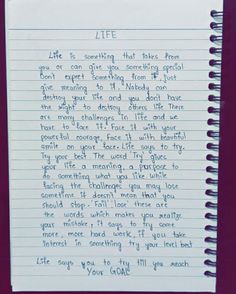 LIFE
Life is something that takes from
you or can give you something special
Don't expect something from it. Just
give meaning to it. Nobody can
destroy your life and you don't have
the right to destroy others life There
are many challenges in life and we
have to face it. Face it with your
powerful courage, Face it with beautiful
smile on your face. Life says to try.
Try your best The word Try gives
your life a meaning, a purpose to
do something what you like. While
facing the challenges you may lose
sometime it doesn't mean that you
should stop. Fail, lose these are
the words which makes you realize
your mistake, it says to try some
more, more hard work, if you take
interest in something try your level best
Life says you to try till you reach
YOUR GOAL